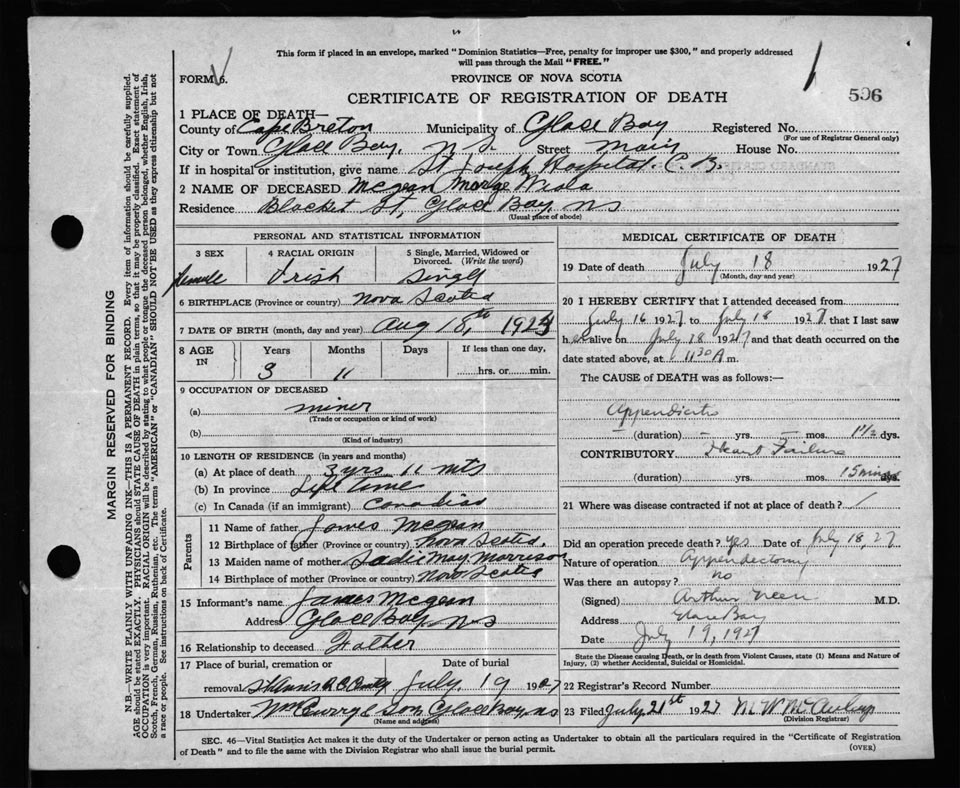 This form if placed in an envelope, marked "Dominion Statistics—Free, penalty for improper use $300," and properly addressed
will pass through the Mail "FREE."
FORM 6.
PROVINCE OF NOVA SCOTIA
CERTIFICATE OF REGISTRATION OF DEATH
506
1 PLACE OF DEATH—
County of Cape Breton Municipality of Glace Bay Registered No.
(For use of Registrar General only)
City or Town Glace Bay, N.S. Street Main House No.
If in hospital or institution, give name St Joseph Hospital. C. B.
2 NAME OF DECEASED Mcgean Marge Viola
Residence Blacket St, Glace Bay, NS
(Usual place of abode)
PERSONAL AND STATISTICAL INFORMATION
3 SEX 4 RACIAL ORIGIN 5 Single, Married, Widowed or Divorced. (Write the word)
female Irish Single
6 BIRTHPLACE (Province or country) Nova Scotia
7 DATE OF BIRTH (month, day and year) Aug 18th, 1923
8 AGE IN Years Months Days If less than one day,
3 11 hrs. or min.
9 OCCUPATION OF DECEASED
(a) miner
(Trade or occupation or kind of work)
(b)
(Kind of industry)
10 LENGTH OF RESIDENCE (in years and months)
(a) At place of death 3 yrs 11 mts
(b) In province Life time
(c) In Canada (if an immigrant) Canadian
Parents
11 Name of father James Mcgean
12 Birthplace of father (Province or country) Nova Scotia
13 Maiden name of mother Sadie May Morrison
14 Birthplace of mother (Province or country) Nova Scotia
15 Informant's name James Mcgean
Address Glace Bay, N S
16 Relationship to deceased Father
17 Place of burial, cremation or Date of burial
removal St Anns R.C. Cemty July 19 1927
18 Undertaker Wm Curry & Son Glace Bay, NS
(Name and address)
MEDICAL CERTIFICATE OF DEATH
19 Date of death July 18 1927
(Month, day and year)
20 I HEREBY CERTIFY that I attended deceased from
July 16 1927 to July 18 1927, that I last saw
her alive on July 18 1927 and that death occurred on the
date stated above, at 11 30 A m.
The CAUSE OF DEATH was as follows:—
Appendicitis
(duration) – yrs. – mos. 1 1/2 dys.
CONTRIBUTORY Heart Failure
(duration) yrs. mos. 15 mins dys.
21 Where was disease contracted if not at place of death?
Did an operation precede death? Yes Date of July 18, 27
Nature of operation Appendectomy
Was there an autopsy? no
(Signed) Arthur Green M.D.
Address Glace Bay
Date July 19, 1927
State the Disease causing Death, or in death from Violent Causes, state (1) Means and Nature of
Injury, (2) whether Accidental, Suicidal or Homicidal.
22 Registrar's Record Number
23 Filed July 21st 1927 M. W. McAulay
(Division Registrar)
SEC. 46—Vital Statistics Act makes it the duty of the Undertaker or person acting as Undertaker to obtain all the particulars required in the "Certificate of Registration
of Death" and to file the same with the Division Registrar who shall issue the burial permit.
(OVER)
MARGIN RESERVED FOR BINDING
N.B.—WRITE PLAINLY WITH UNFADING INK—THIS IS A PERMANENT RECORD. Every item of information should be carefully supplied.
AGE should be stated EXACTLY. PHYSICIANS should STATE CAUSE OF DEATH in plain terms, so that it may be properly classified. Exact statement of
OCCUPATION is very important. RACIAL ORIGIN will be described by stating to what people or tongue the deceased person belonged, whether English, Irish,
Scotch, French, German, Russian, Ruthenian, etc. The terms "AMERICAN" or "CANADIAN" SHOULD NOT BE USED as they express citizenship but not
a race or people. See instructions on back of Certificate.